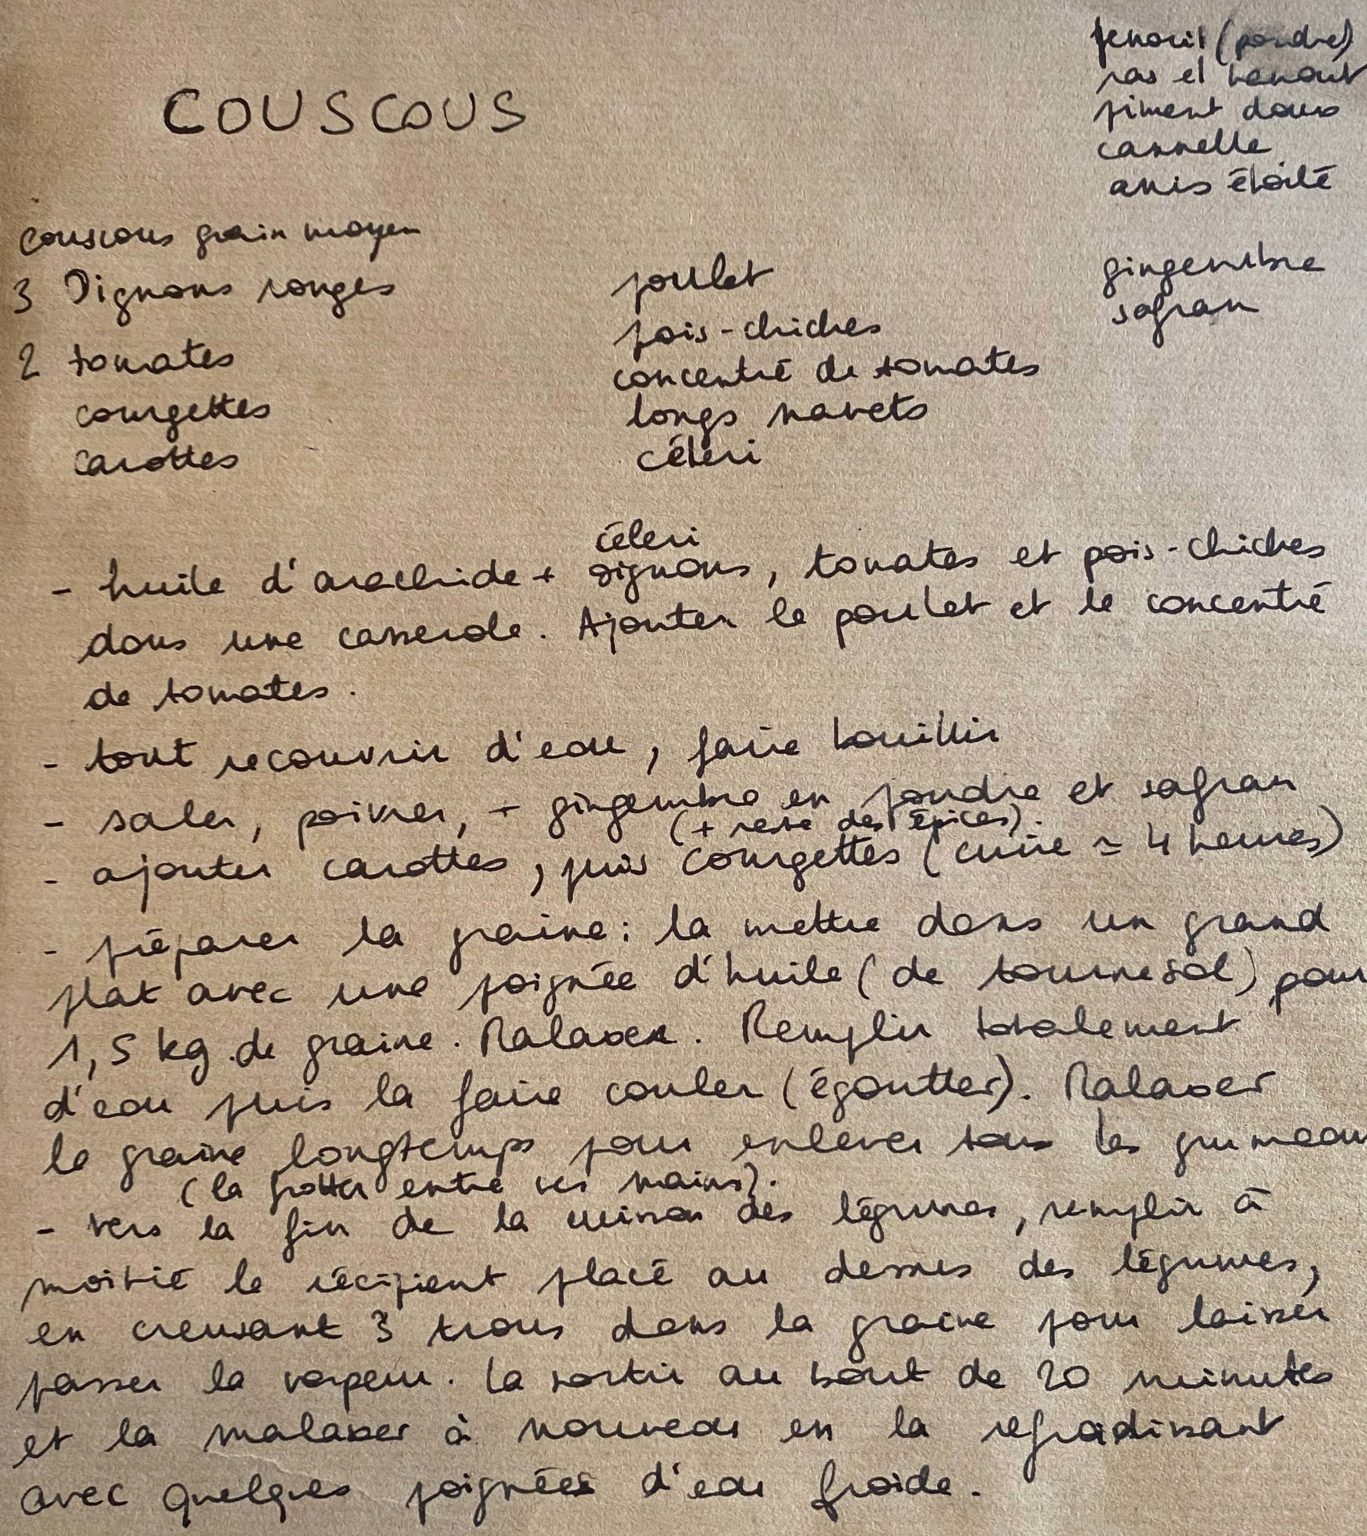 COUSCOUS
fenouil (poudre)
ras el hanout
piment doux
cannelle
anis étoilé
gingembre
safran
couscous grain moyen
3 Oignons rouges
2 tomates
courgettes
carottes
poulet
pois-chiches
concentré de tomates
longs navets
céleri
céleri
- huile d'arachide + oignons, tomates et pois-chiches
dans une casserole. Ajouter le poulet et le concentré
de tomates.
- tout recouvrir d'eau, faire bouillir
- saler, poivrer, + gingembre en poudre et safran
(+ reste des épices).
- ajouter carottes, puis courgettes (cuire ≈ 4 heures)
- préparer la graine : la mettre dans un grand
plat avec une poignée d'huile (de tournesol) pour
1,5 kg de graine. Malaxer. Remplir totalement
d'eau puis la faire couler (égoutter). Malaxer
la graine longtemps pour enlever tous les grumeaux
(la frotter entre ses mains).
- vers la fin de la cuisson des légumes, remplir à
moitié le récipient placé au dessus des légumes,
en creusant 3 trous dans la graine pour laisser
passer la vapeur. La sortir au bout de 20 minutes
et la malaxer à nouveau en la refroidissant
avec quelques poignées d'eau froide.